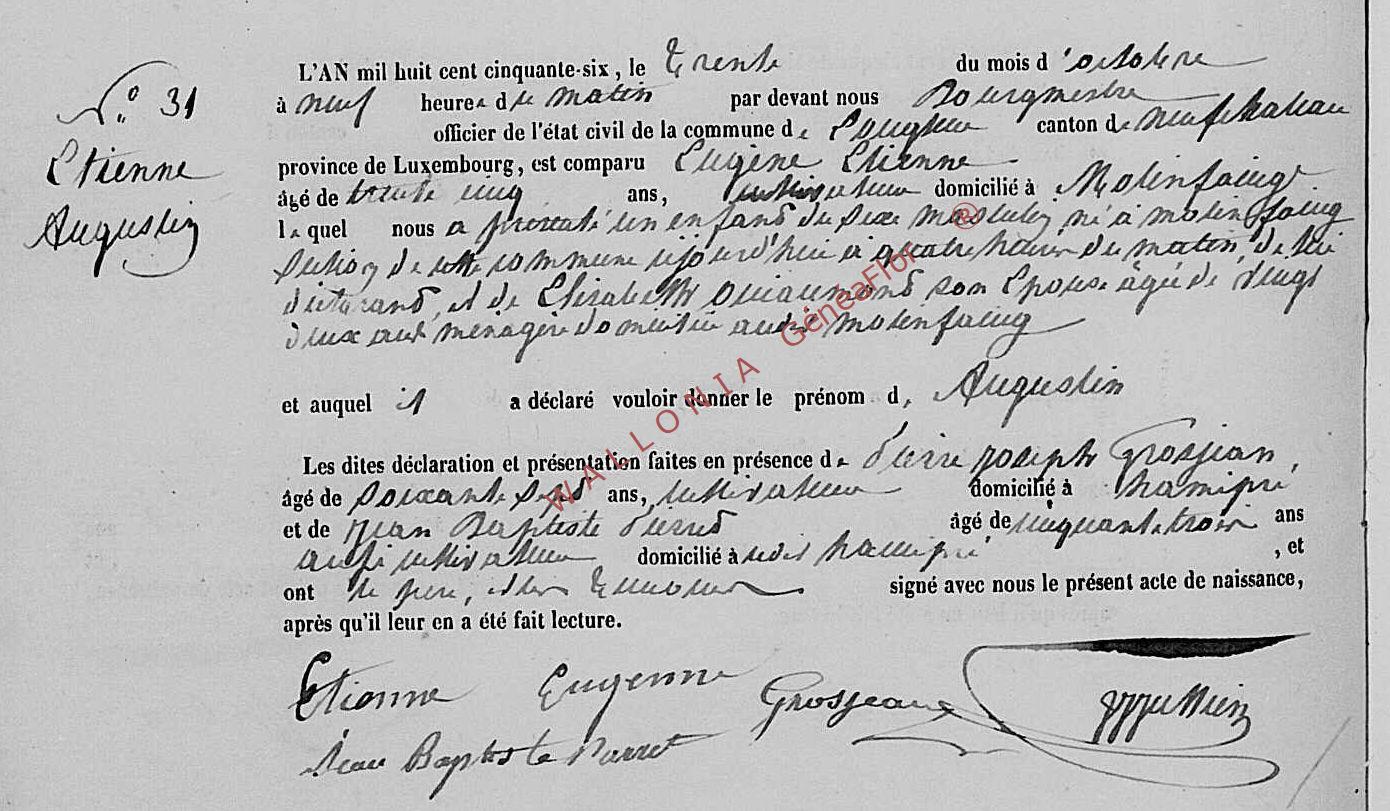 N° 31
Etienne
Augustin
L'AN mil huit cent cinquante-six, le Trente du mois d'octobre
à neuf heures du matin par devant nous Bourgmestre
officier de l'état civil de la commune de Longlier canton de neufchateau
province de Luxembourg, est comparu Eugène Etienne
âgé de trente cinq ans, cultivateur domicilié à Molinfaing
lequel nous a présenté un enfant du sexe masculin, né à molinfaing
section de cette commune cejourd'hui à quatre heures du matin, de lui
déclarant, et de Elisabeth son Epouse âgée de vingt
deux ans ménagère domiciliée audit molinfaing
et auquel il a déclaré vouloir donner le prénom d, Augustin
Les dites déclaration et présentation faites en présence de Pierre joseph Grosjean,
âgé de soixante sept ans, cultivateur domicilié à hamipré
et de jean Baptiste âgé de cinquante trois ans
aussi cultivateur domicilié à hamipré, et
ont le père, et les témoins signé avec nous le présent acte de naissance,
après qu'il leur en a été fait lecture.
Etienne Eugenne Grosjean
Jean Baptiste
WALLONIA GéneaFlor ®